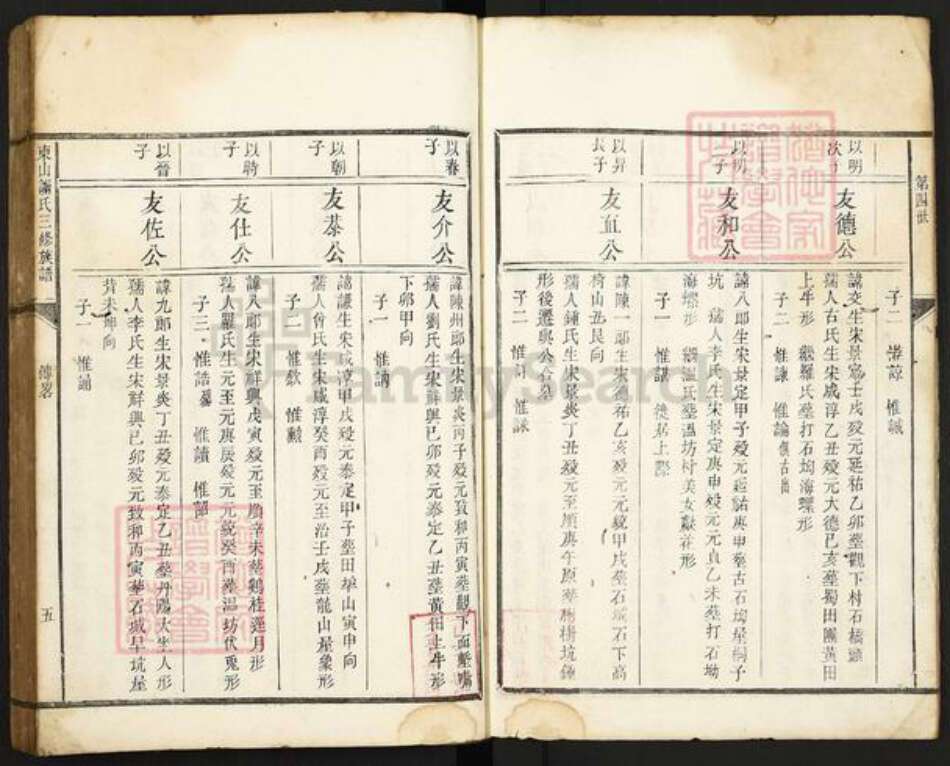 第四世
子二 惟諒 惟誠
以明次子
友德公
諱交生宋景定壬戌歿元延祐乙卯塟觀下村石橋頭
孺人古氏生宋咸淳乙丑歿元大德己亥塟蜀田團黃田
上牛形 繼羅氏塟打石坳海螺形
子二 惟諫 惟論
以明子
友和公
諱八郎生宋景定甲子歿元延祐庚申塟古石坳星桐子
坑 孺人李氏生宋景定庚申歿元元貞乙未塟打石坳
海螺形 繼溫氏塟溫坊村美女獻花形
子一 惟諶 徙居上杭
以昇長子
友直公
諱陳一郎生宋德祐乙亥歿元元統甲戌塟石城石下高
椅山丑艮向
孺人鍾氏生宋景炎丁丑歿元至順庚午原塟
形後遷與公合塟
子二 惟
以春子
友介公
諱陳州郎生宋景炎丙子歿元致和丙寅塟觀下面
孺人劉氏生宋祥興己卯歿元泰定乙丑塟黃田上牛形
下卯甲向
子一 惟訥
以朝子
友恭公
諱謙生宋咸淳甲戌歿元泰定甲子塟田 山寅申向
孺人曾氏生宋咸淳癸酉歿元至治壬戌塟龍山屋象形
子二 惟欽 惟獻
以時子
友仕公
諱八郎生宋祥興戊寅歿元至順辛未塟鷄桂逐月形
孺人羅氏生元至元庚辰歿元元統癸酉塟溫坊伏兎形
子三 惟誥 惟讀 惟韶
以晉子
友佐公
諱九郎生宋景炎丁丑歿元泰定乙丑塟丹陽大坐人形
孺人李氏生宋祥興己卯歿元致和丙寅塟石城旱坑屋
背未坤向
子一 惟誦
東山蕭氏三修族譜
傳畧
五
FamilySearch